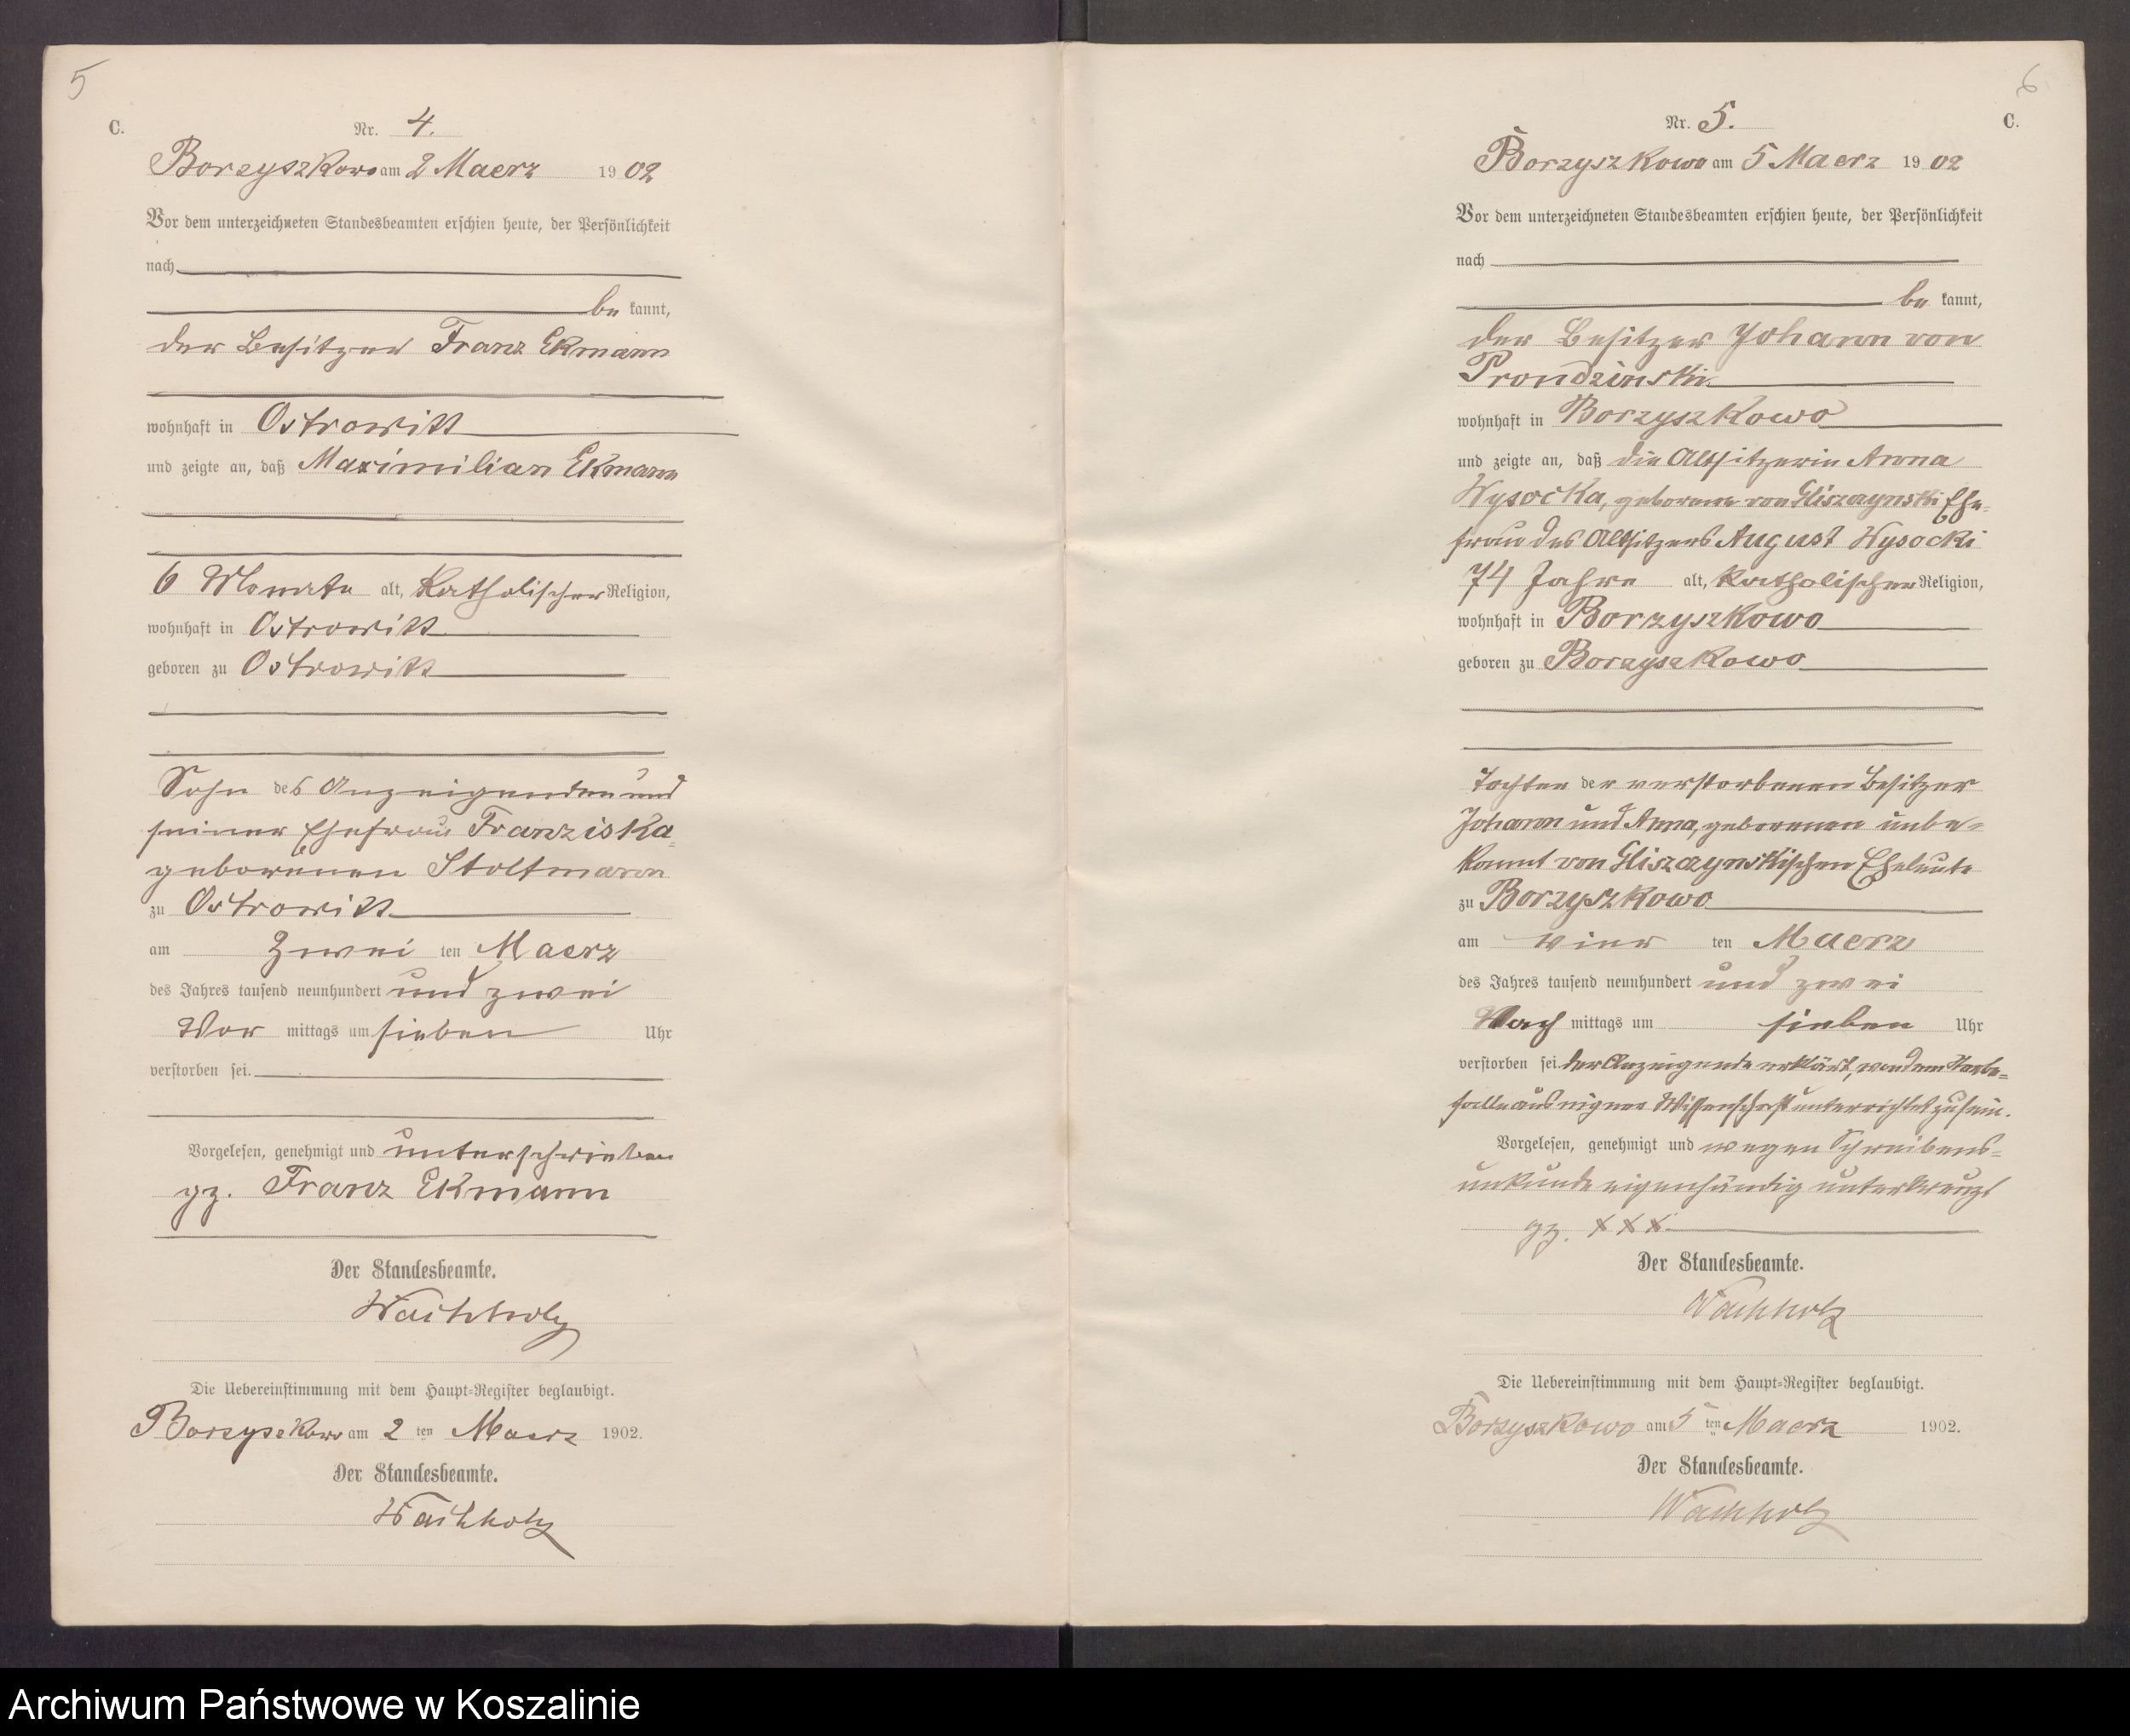 5
C.
Nr. 4.
Borzyszkowo am 2 Maerz 1902
Vor dem unterzeichneten Standesbeamten erschien heute, der Persönlichkeit
nach
be kannt,
der Besitzer Franz Ekmann
wohnhaft in Ostrowitt
und zeigte an, daß Maximilian Ekmann
6 Monate alt, Katholischer Religion,
wohnhaft in Ostrowitt
geboren zu Ostrowitt
Sohn des Anzeigenden und
seiner Ehefrau Franziska
geborenen Stoltmann
zu Ostrowitt
am Zwei ten Maerz
des Jahres tausend neunhundert und zwei
Vor mittags um sieben Uhr
verstorben sei.
Vorgelesen, genehmigt und unterschrieben
gz. Franz Ekmann
Der Standesbeamte.
Wachholz
Die Uebereinstimmung mit dem Haupt-Register beglaubigt.
Borzyszkowo am 2 ten Maerz 1902.
Der Standesbeamte.
Wachholz
6
Nr. 5. C.
Borzyszkowo am 5 Maerz 1902
Vor dem unterzeichneten Standesbeamten erschien heute, der Persönlichkeit
nach
be kannt,
der Besitzer Johann von
Prondzinski
wohnhaft in Borzyszkowo
und zeigte an, daß die Altsitzerin Anna
Wysocka, geborene von Gliszczynski Ehe-
frau des Altsitzers August Wysocki
74 Jahre alt, Katholischer Religion,
wohnhaft in Borzyszkowo
geboren zu Borzyszkowo
Tochter der verstorbenen Besitzer
Johann und Anna, geborenen unbe-
kannt von Gliszczynskischen Eheleute
zu Borzyszkowo
am vier ten Maerz
des Jahres tausend neunhundert und zwei
Nach mittags um sieben Uhr
verstorben sei. der Anzeigende erklärt, von dem Sterbe-
falle aus eigner Wissenschaft unterrichtet zu sein.
Vorgelesen, genehmigt und wegen Schreibens-
unkunde eigenhändig unterkreuzt
gz. XXX
Der Standesbeamte.
Wachholz
Die Uebereinstimmung mit dem Haupt-Register beglaubigt.
Borzyszkowo am 5 ten Maerz 1902.
Der Standesbeamte.
Wachholz
Archiwum Państwowe w Koszalinie